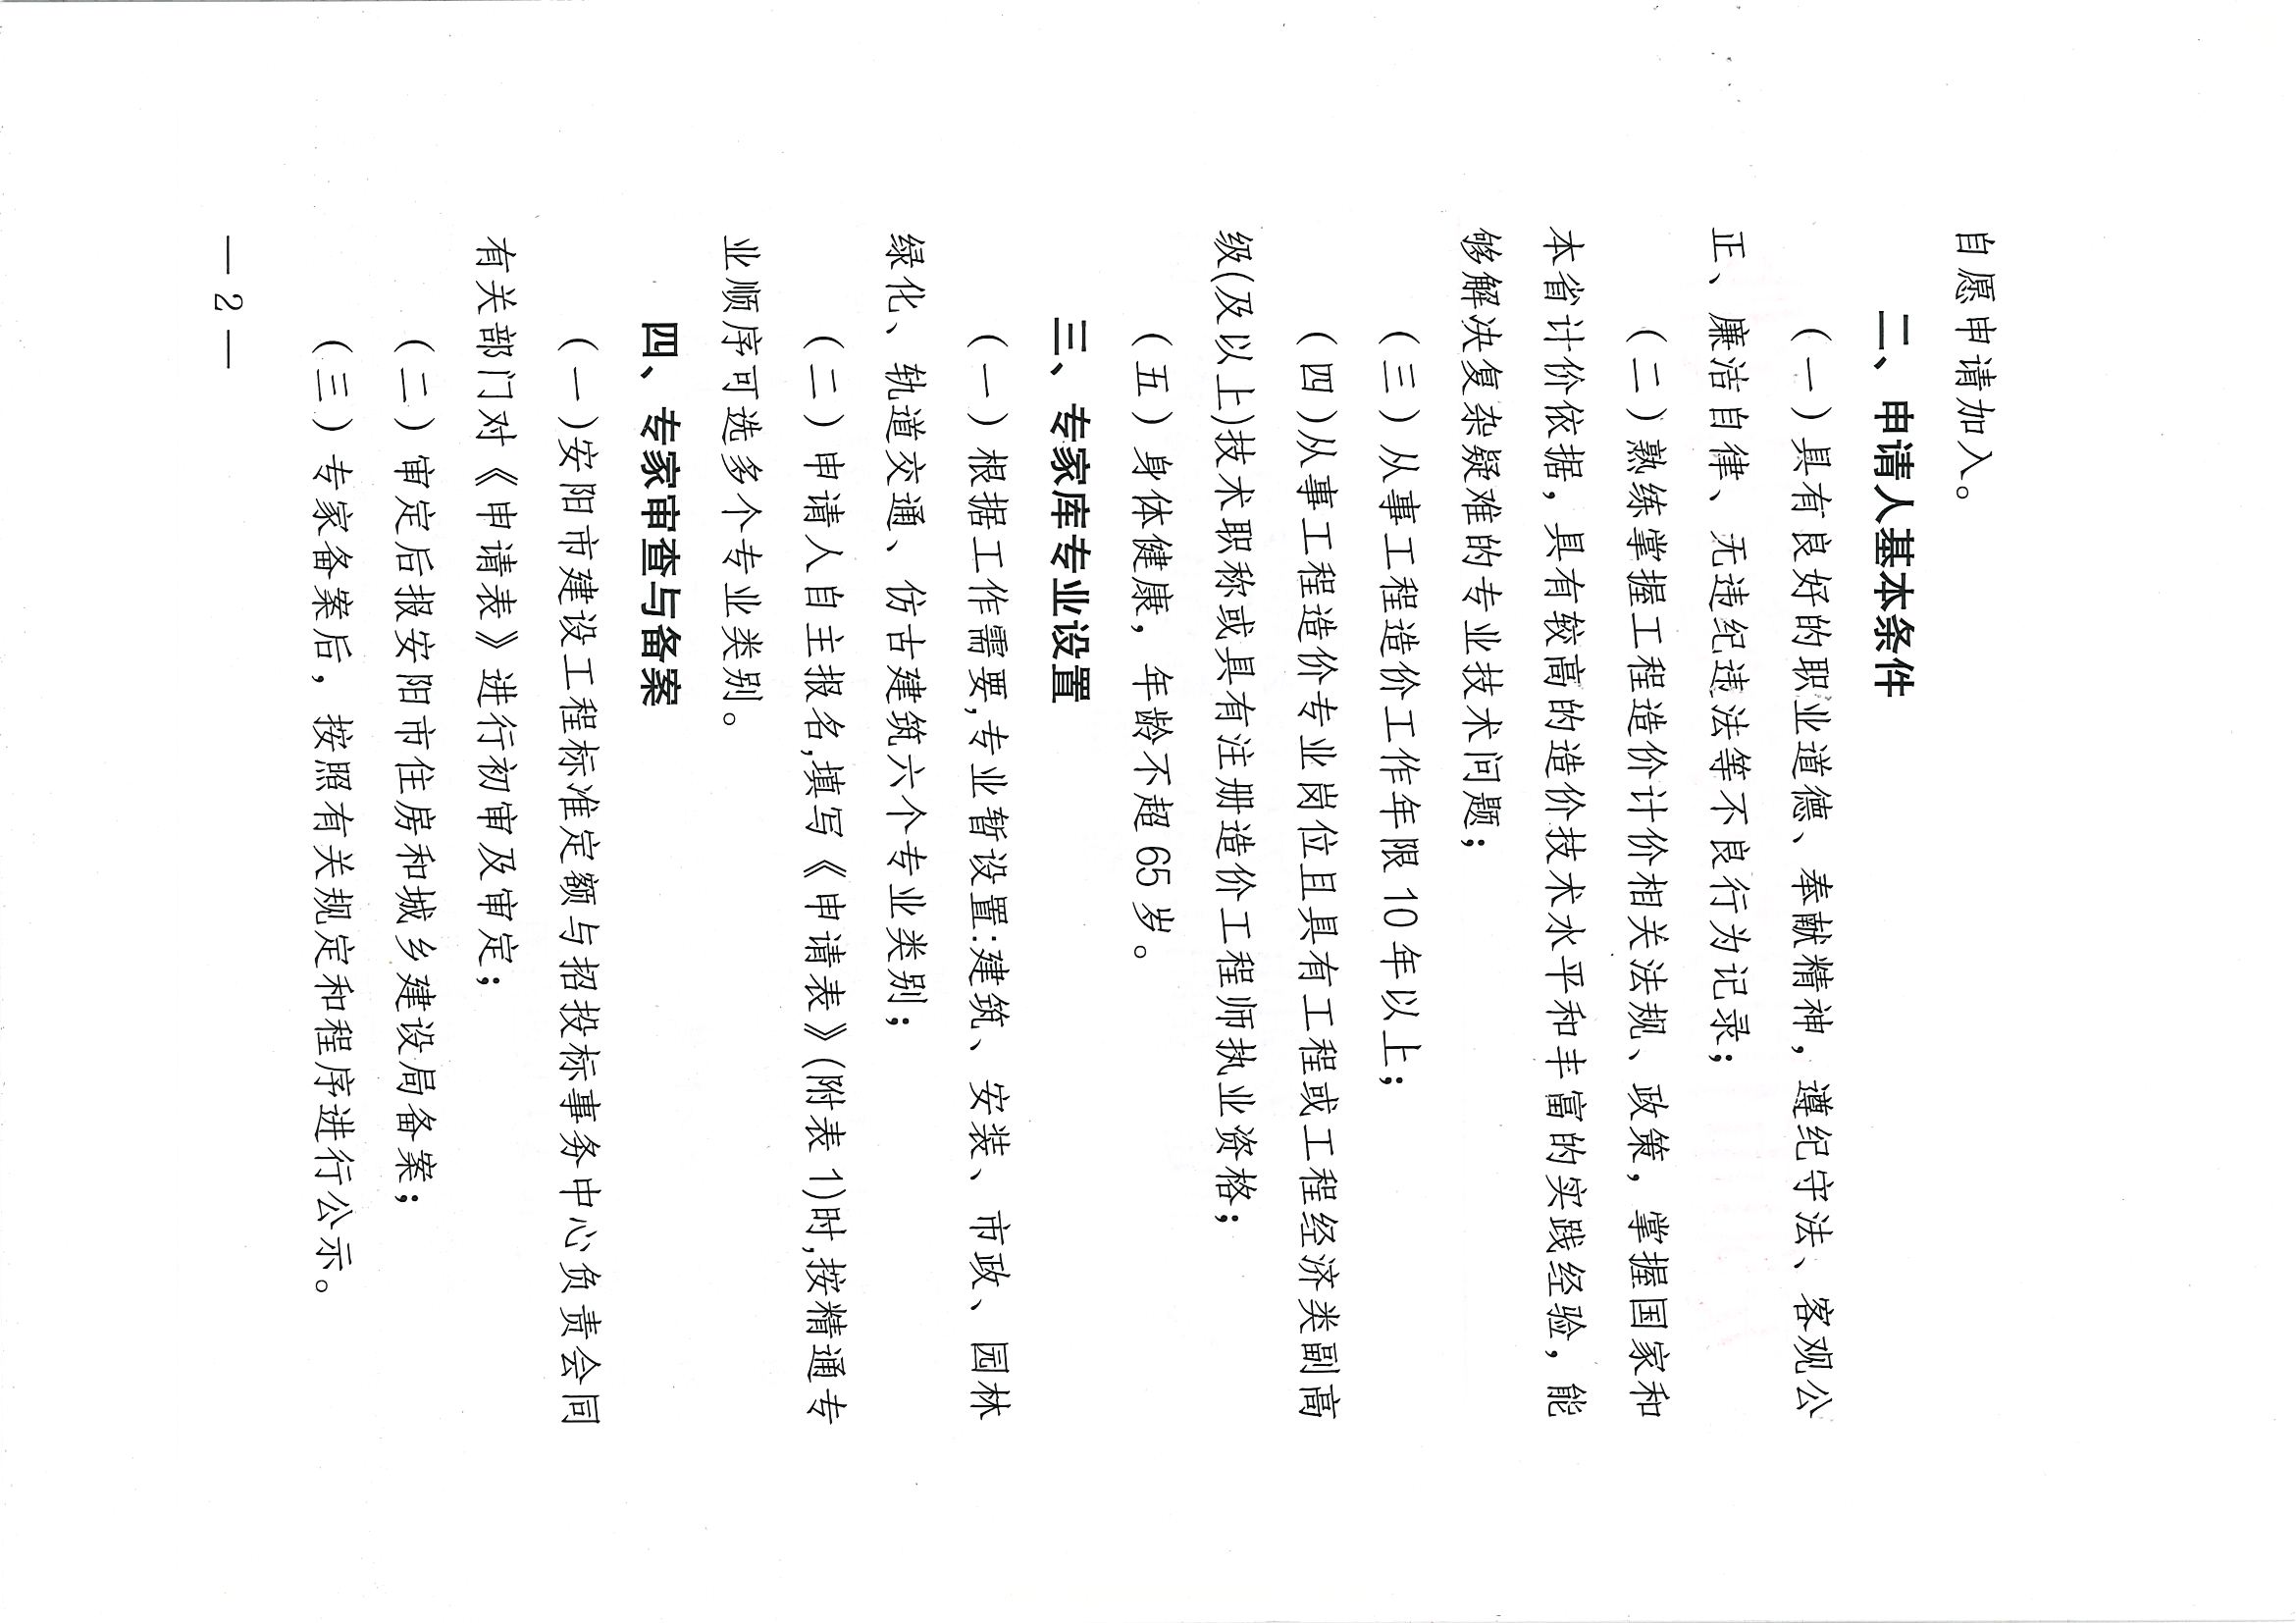 自愿申请加入。
二、申请人基本条件
（一）具有良好的职业道德、奉献精神，遵纪守法、客观公
正、廉洁自律、无违纪违法等不良行为记录；
（二）熟练掌握工程造价计价相关法规、政策，掌握国家和
本省计价依据，具有较高的造价技术水平和丰富的实践经验，能
够解决复杂疑难的专业技术问题；
（三）从事工程造价工作年限 10 年以上；
（四）从事工程造价专业岗位且具有工程或工程经济类副高
级(及以上)技术职称或具有注册造价工程师执业资格；
（五）身体健康，年龄不超 65 岁。
三、专家库专业设置
（一）根据工作需要,专业暂设置:建筑、安装、市政、园林
绿化、轨道交通、仿古建筑六个专业类别；
（二）申请人自主报名,填写《申请表》(附表 1)时,按精通专
业顺序可选多个专业类别。
四、专家审查与备案
（一）安阳市建设工程标准定额与招投标事务中心负责会同
有关部门对《申请表》进行初审及审定；
（二）审定后报安阳市住房和城乡建设局备案；
（三）专家备案后，按照有关规定和程序进行公示。
— 2 —